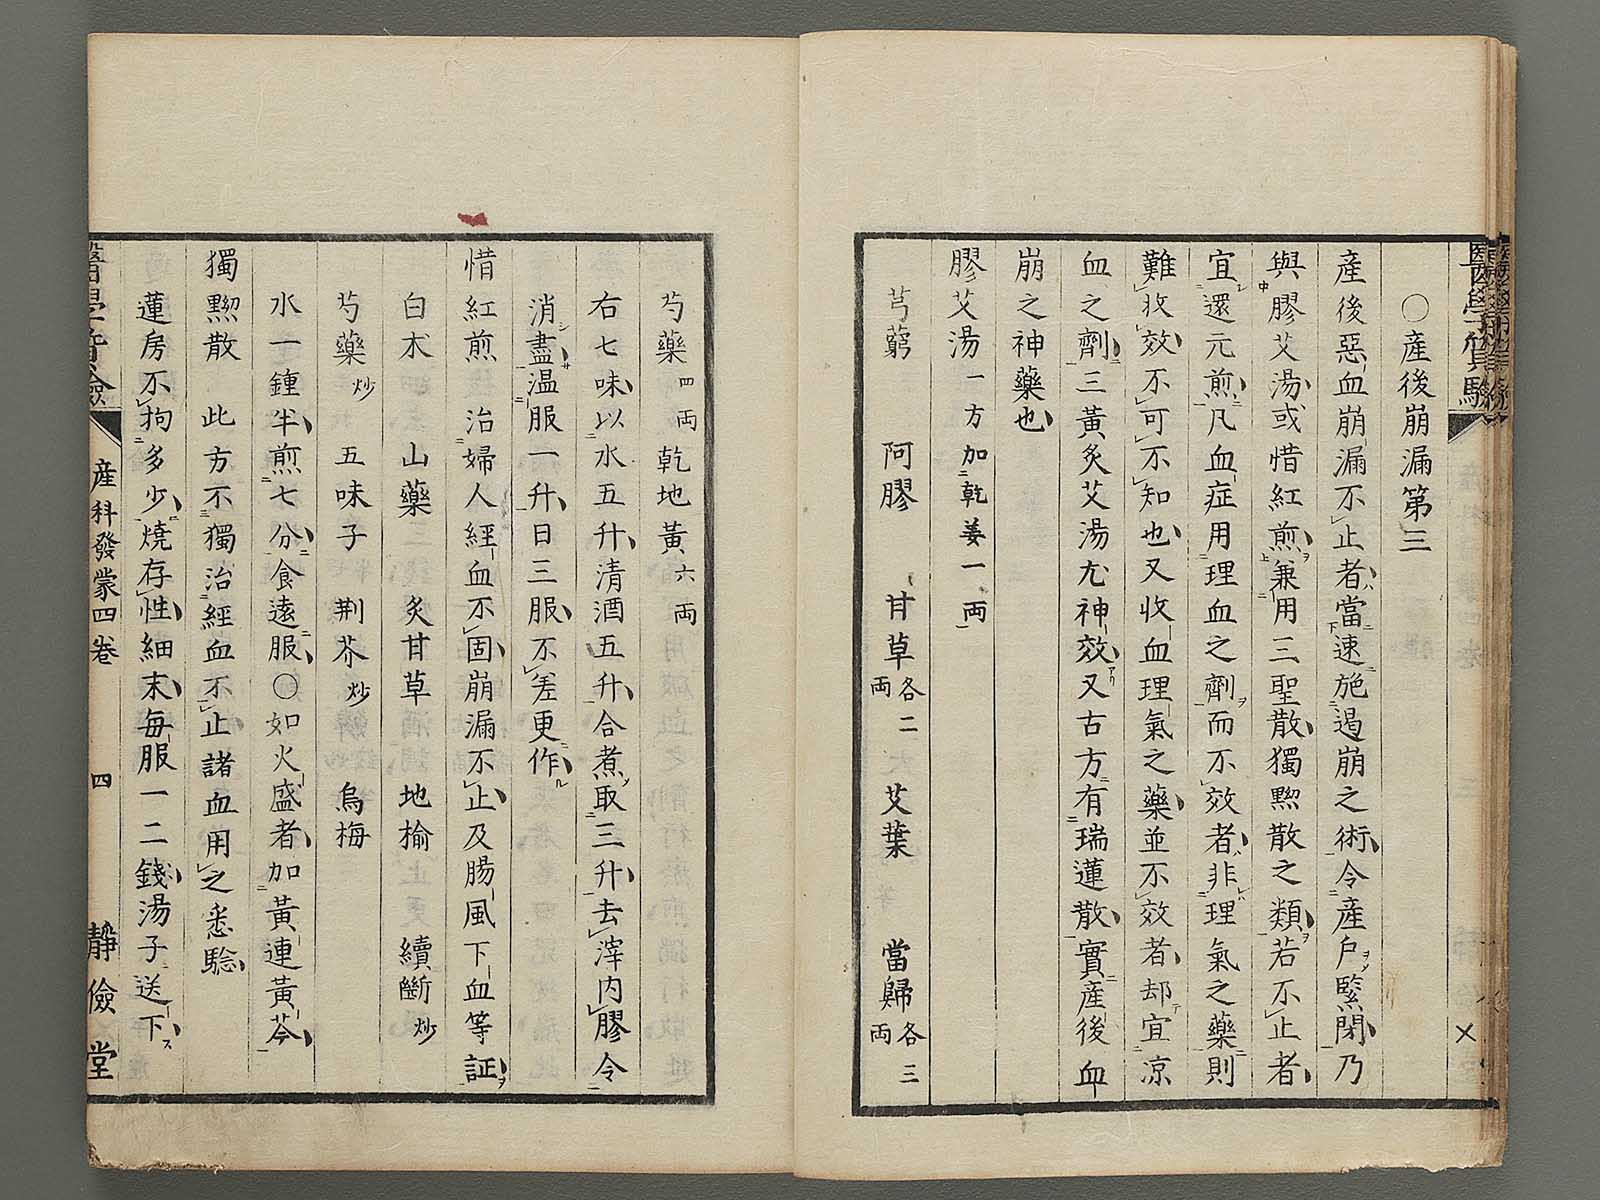 ○産後崩漏第三
産後惡血崩漏不止者當速施遏崩之術令産户緊閉乃
與膠艾湯或惜紅煎兼用三聖散獨黙散之類若不止者
宜還元煎凡血症用理血之劑而不效者非理氣之藥則
難收效不可不知也又收血理氣之藥並不效者却宜凉
血之劑三黃炙艾湯尤神效又古方有瑞蓮散實産後血
崩之神藥也
膠艾湯 一方加乾姜一両
芎藭 阿膠 甘草各二両 艾葉 當歸各三両
芍藥四両 乾地黃六両
右七味以水五升清酒五升合煮取三升去滓内膠令
消盡温服一升日三服不差更作
惜紅煎 治婦人經血不固崩漏不止及腸風下血等証
白朮 山藥 炙甘草 地榆 續斷炒
芍藥炒 五味子 荆芥炒 烏梅
水一鍾半煎七分食遠服○如火盛者加黃連黃芩
獨黙散 此方不獨治經血不止諸血用之悉驗
蓮房不拘多少燒存性細末每服一二錢湯子送下
産科發蒙四卷 四 靜儉堂